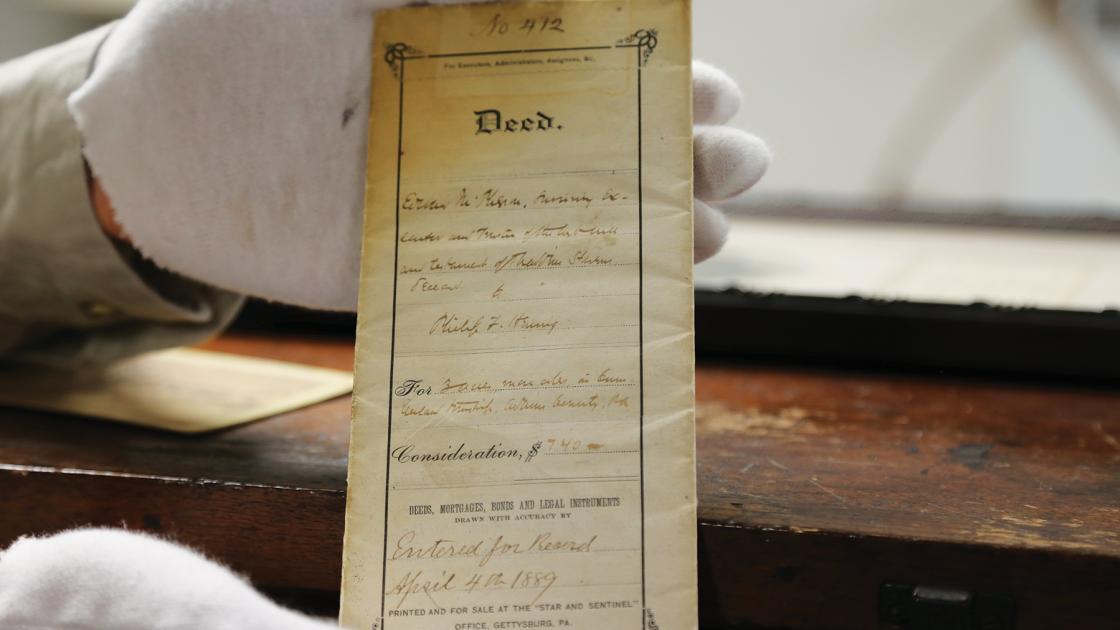 No 412
For Executors, Administrators, Assignees, &c.
Deed.
Edward McPherson, surviving ex-
ecutor and Trustee of the last will
and testament of Thaddeus Stevens
Deceased to
Philip F.
For 3 acres more or less, in Cum-
berland Township, Adams County, Pa
Consideration, $ 740
DEEDS, MORTGAGES, BONDS AND LEGAL INSTRUMENTS
DRAWN WITH ACCURACY BY
Entered for Record
April 4th 1889
PRINTED AND FOR SALE AT THE "STAR AND SENTINEL"
OFFICE, GETTYSBURG, PA.